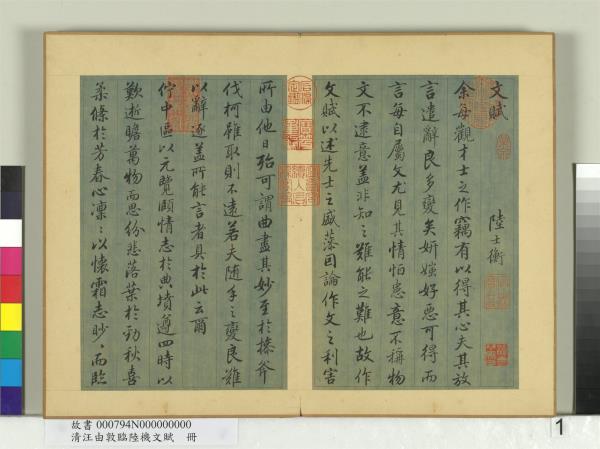 文賦 陸士衡
余每觀才士之作竊有以得其心夫其放
言遣辭良多變矣妍媸好惡可得而
言每自屬文尤見其情恒患意不稱物
文不逮意盖非知之難能之難也故作
文賦以述先士之盛藻因論作文之利害
所由他日殆可謂曲盡其妙至於操斧
伐柯雖取則不遠若夫隨手之變良難
以辭逐盖所能言者具於此云爾
佇中區以元覽頤情志於典墳遵四時以
歎逝瞻萬物而思紛悲落葉於勁秋喜
柔條於芳春心凛〻以懷霜志眇〻而臨
故書 000794N000000000
清汪由敦臨陸機文賦 冊
1